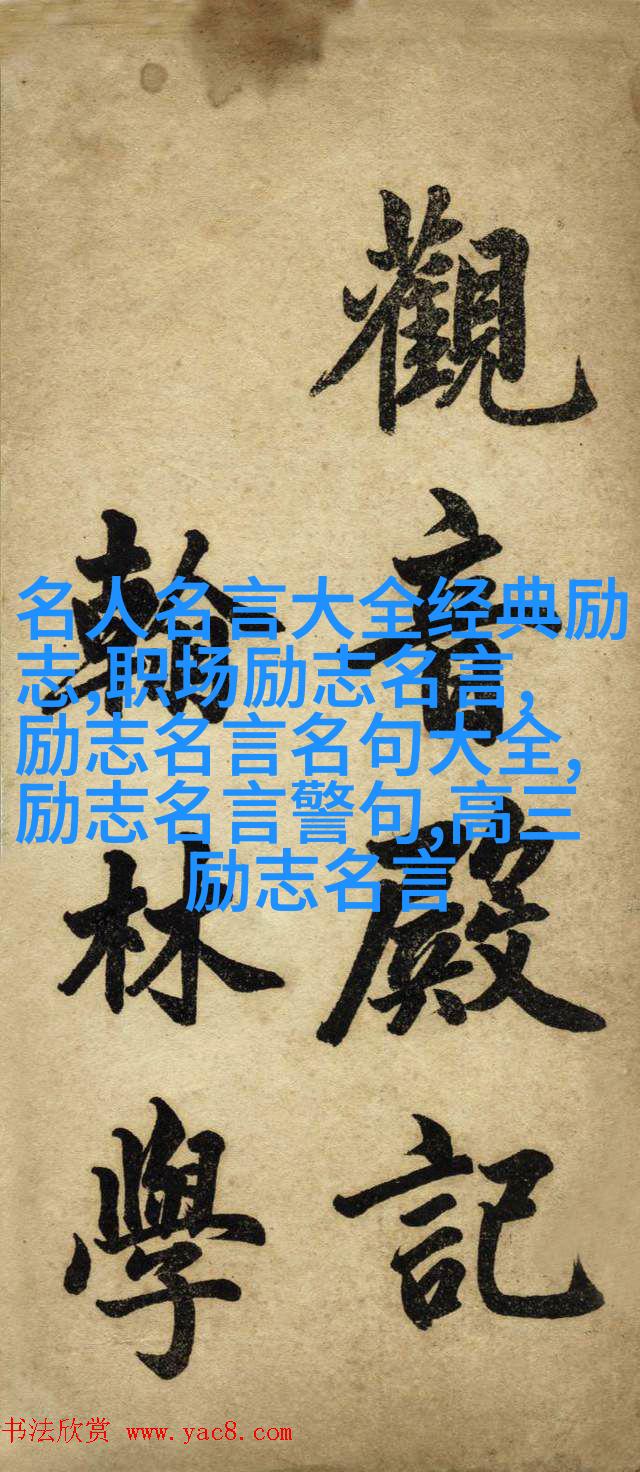 觀音殿記
翰林學
名人名言大全经典励
志,职场励志名言,
励志名言名句大全,
励志名言警句,高三
励志名言
书法欣赏 www.yac8.com